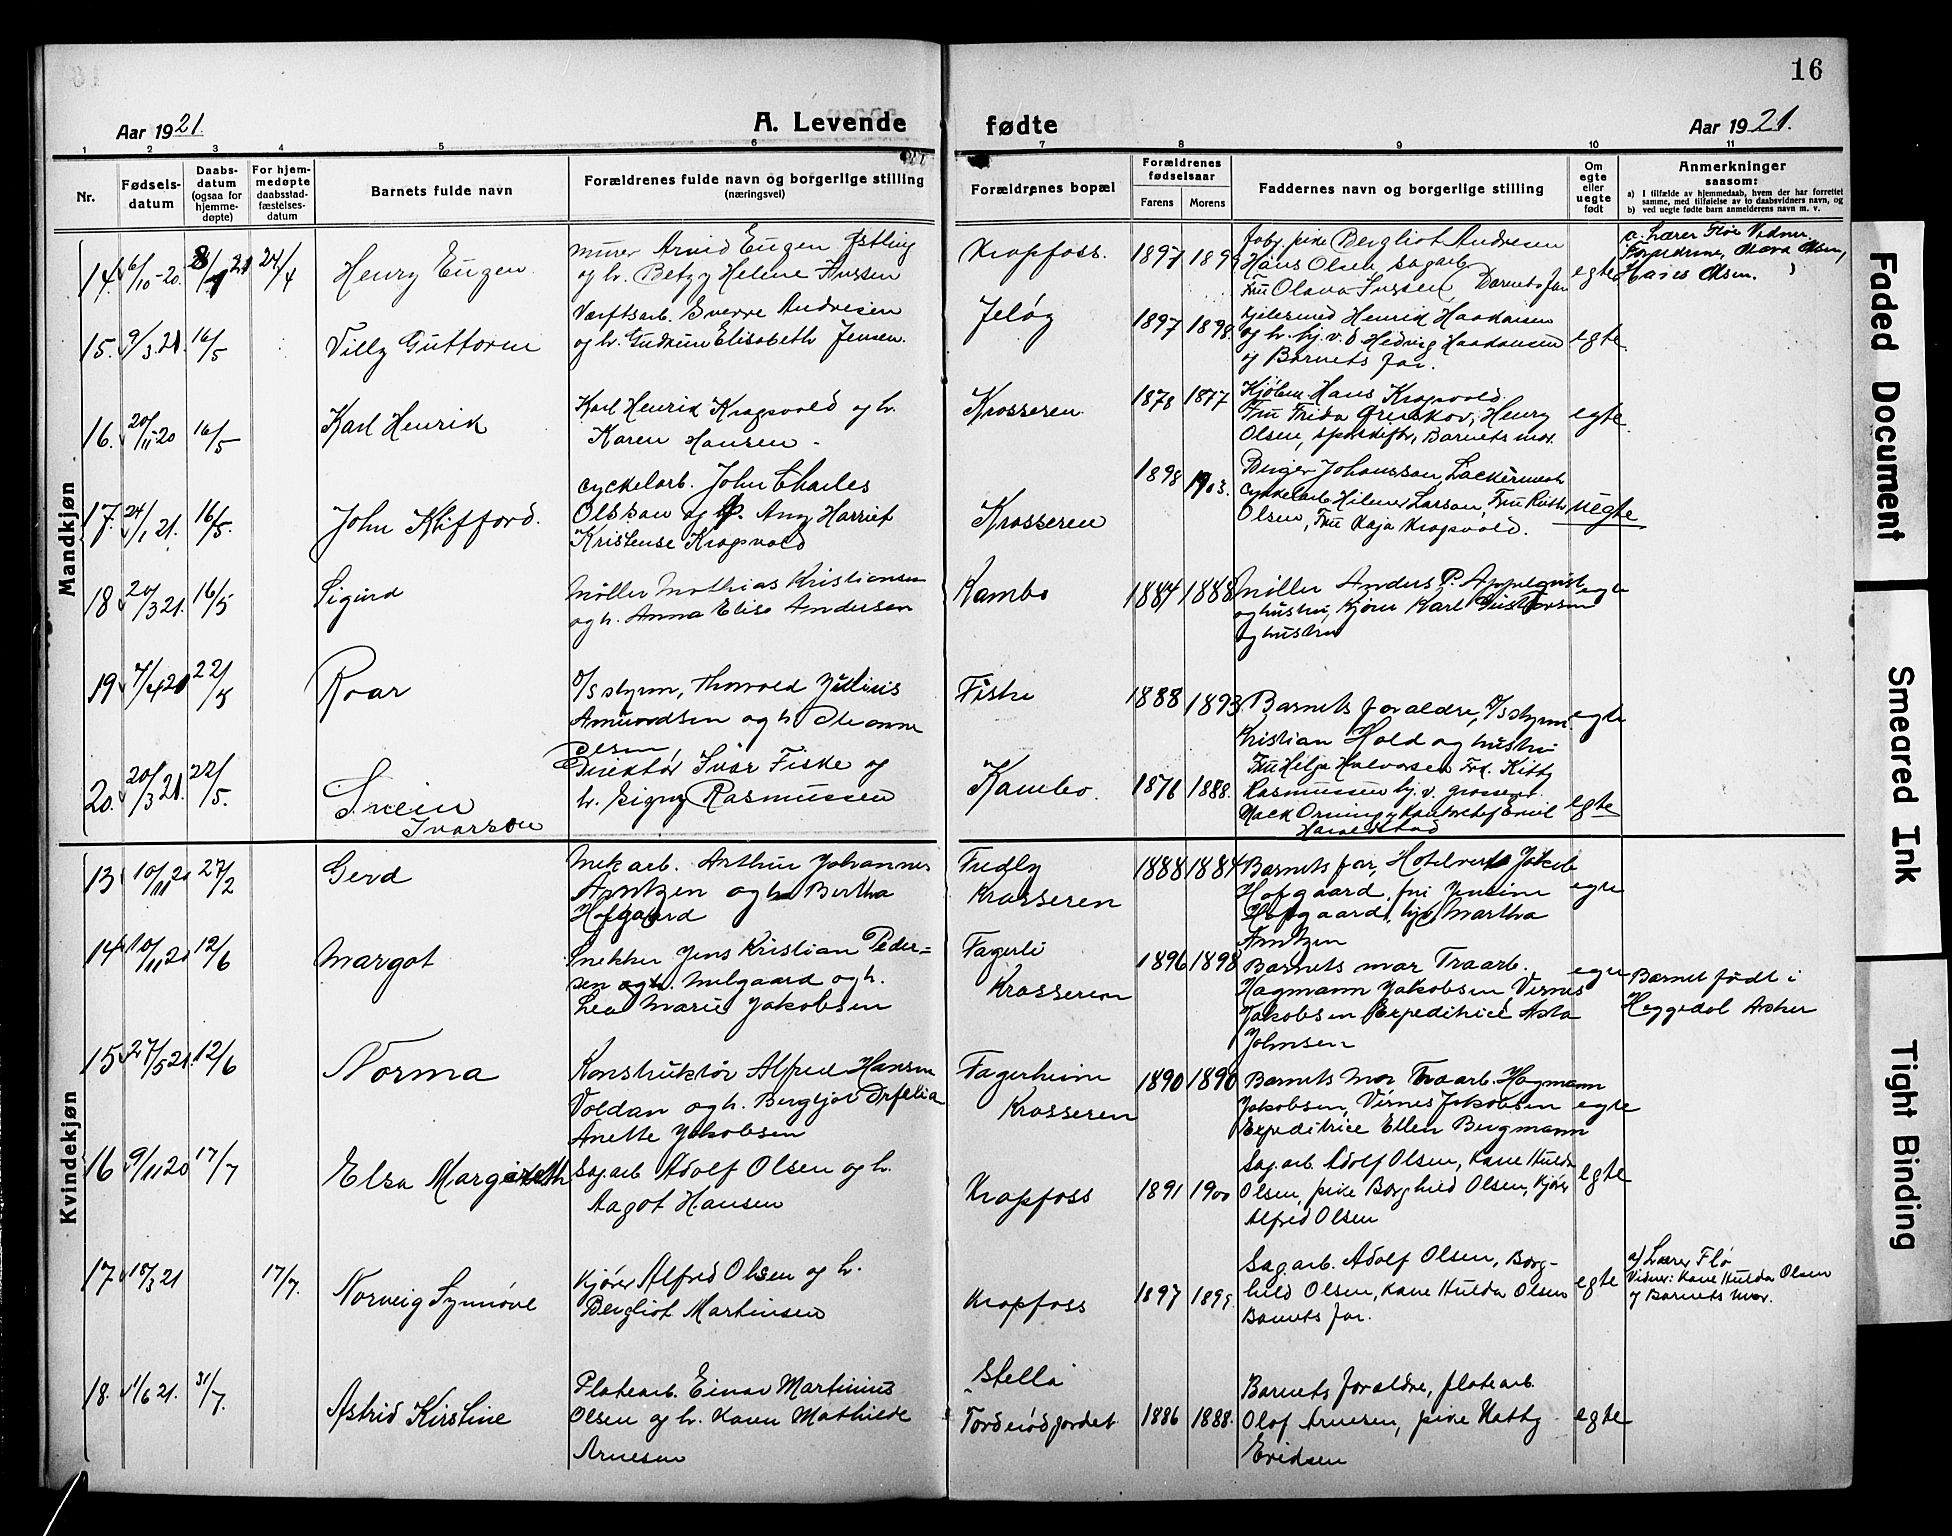 16
Aar 1921.
A. Levende fødte
Aar 1921.
1 2 3 4 5 6 7 8 9 10 11
Nr.
Fødsels-
datum
Daabs-
datum
(ogsaa for
hjemme-
døpte)
For hjem-
medøpte
daabsstad-
fæstelses-
datum
Barnets fulde navn
Forældrenes fulde navn og borgerlige stilling
(næringsvei)
Forældrenes bopæl
Forældrenes
fødselsaar
Farens Morens
Faddernes navn og borgerlige stilling
Om
egte
eller
uegte
født
Anmerkninger
saasom:
a) I tilfælde av hjemmedaab, hvem der har forrettet
samme, med tilføielse av to daabsvidners navn, og
b) ved uegte fødte barn anmelderens navn m. v.
Mandkjøn
14. 6/10-20. 24/4
Henry Eugen
murer Arvid Eugen Østling
og h. Betzy Helene
Kropfoss.
1897
Bergliot Andresen
Hans Olsen sagarb.
Fru Olava Barnets far
egte
a. Lærer Flø
Olava Olsen,
Hans Olsen.
15. 9/3 21. 16/5
Villy Guttorm
Værftsarb. Sverre Andresen
og h. Gudrun Elisabeth Jensen.
Jeløy
1897 1898
Henrik Haakonsen
og h. Hedvig Haakonsen
og Barnets far.
egte
16. 20/11-20 16/5
Karl Henrik
Karl Henrik Kragsvold og h.
Karen Hansen -
Krosseren
1878 1877
Hans Kragsvold.
Fru Frida Henry
Olsen, Barnets mor
egte.
17. 24/1 21. 16/5.
John Klifford.
cyckelarb. John Charles
Olsson og Any Harriet
Kristense Kragsvold
Krosseren
1898 1903.
Birger Johansson,
cykkelarb. Hilmer Larson, Fru Ruth
Olsen, Fru Kaja Kragsvold.
uegte
18 20/3 21. 16/5
Sigurd
Møller Mathias Kristiansen
og h. Anna Elise Andersen
Kambo
1884 1888
Møller Anders P. Appelqvist
og hustru, Kjører Karl
og hustru
egte
19 7/4 21 22/5
Roar
Thorvald Julius
Amundsen og h.
Olsen
Fiske
1888 1893
Barnets forældre,
Kristian Hold og hustru
egte
20. 20/3 21. 22/5.
Svein
Ivarson
Direktør Ivar Fiske og
h. Signy Rasmussen
Kambo.
1876 1888.
Fru Helga Halvorsen Frk. Kitty
Rasmussen
egte
Kvindekjøn
13 10/11 20 27/2
Gerd
Mek arb. Arthur Johannes
Arntzen og h Bertha
Hofgaard
Fredly
Krosseren
1888 1884
Barnets far, Hotelvert Jakob
Hofgaard, fru Jensine
Hofgaard, Martha
Arntzen
egte
14 10/11 20 12/6
Margot
Snekker Jens Kristian Peder=
sen Melgaard og h.
Lea Marie Jakobsen
Fagerli
Krosseren
1896 1898
Barnets mor Traarb.
Hagmann Jakobsen Virnes
Jakobsen Expeditrice Asta
Johnsen
egte
Barnet født i
Heggedal Asker
15 27/5 21. 12/6
Norma
Konstruktør Alfred Hansen
Voldan og h. Bergljot Orfelia
Anette Jakobsen
Fagerheim
Krosseren
1890 1890
Barnets mor Traarb. Hagmann
Jakobsen, Virnes Jakobsen
Expeditrice Ellen Bergmann
egte
16 9/11 20 17/7
Elsa Margareth
Sag.arb Adolf Olsen og h.
Aagot Hansen
Kropfoss
1891 1900
Sag.arb. Adolf Olsen, Kane Hulda
Olsen, pike Borghild Olsen, Kjører
Alfred Olsen
egte
17 18/3 21 17/7.
Norveig Synnøve
Kjører Alfred Olsen og h.
Bergliot Martinsen
Kropfoss
1897 1899.
Sag.arb. Adolf Olsen, Borg-
hild Olsen, Kane Hulda Olsen
Barnets far.
egte
a) Lærer Flø
Vidner: Kane Hulda Olsen
og Barnets mor.
18. 1/6 21. 31/7.
Astrid Kirstine
Platearb. Einar Martinius
Olsen og h. Karen Mathilde
Arnesen
Stella
Tordnødjordet
1886 1888.
Barnets forældre, platearb.
Olaf Arnesen, pike Katty
Eridsen
egte
Faded Document
Smeared Ink
Tight Binding